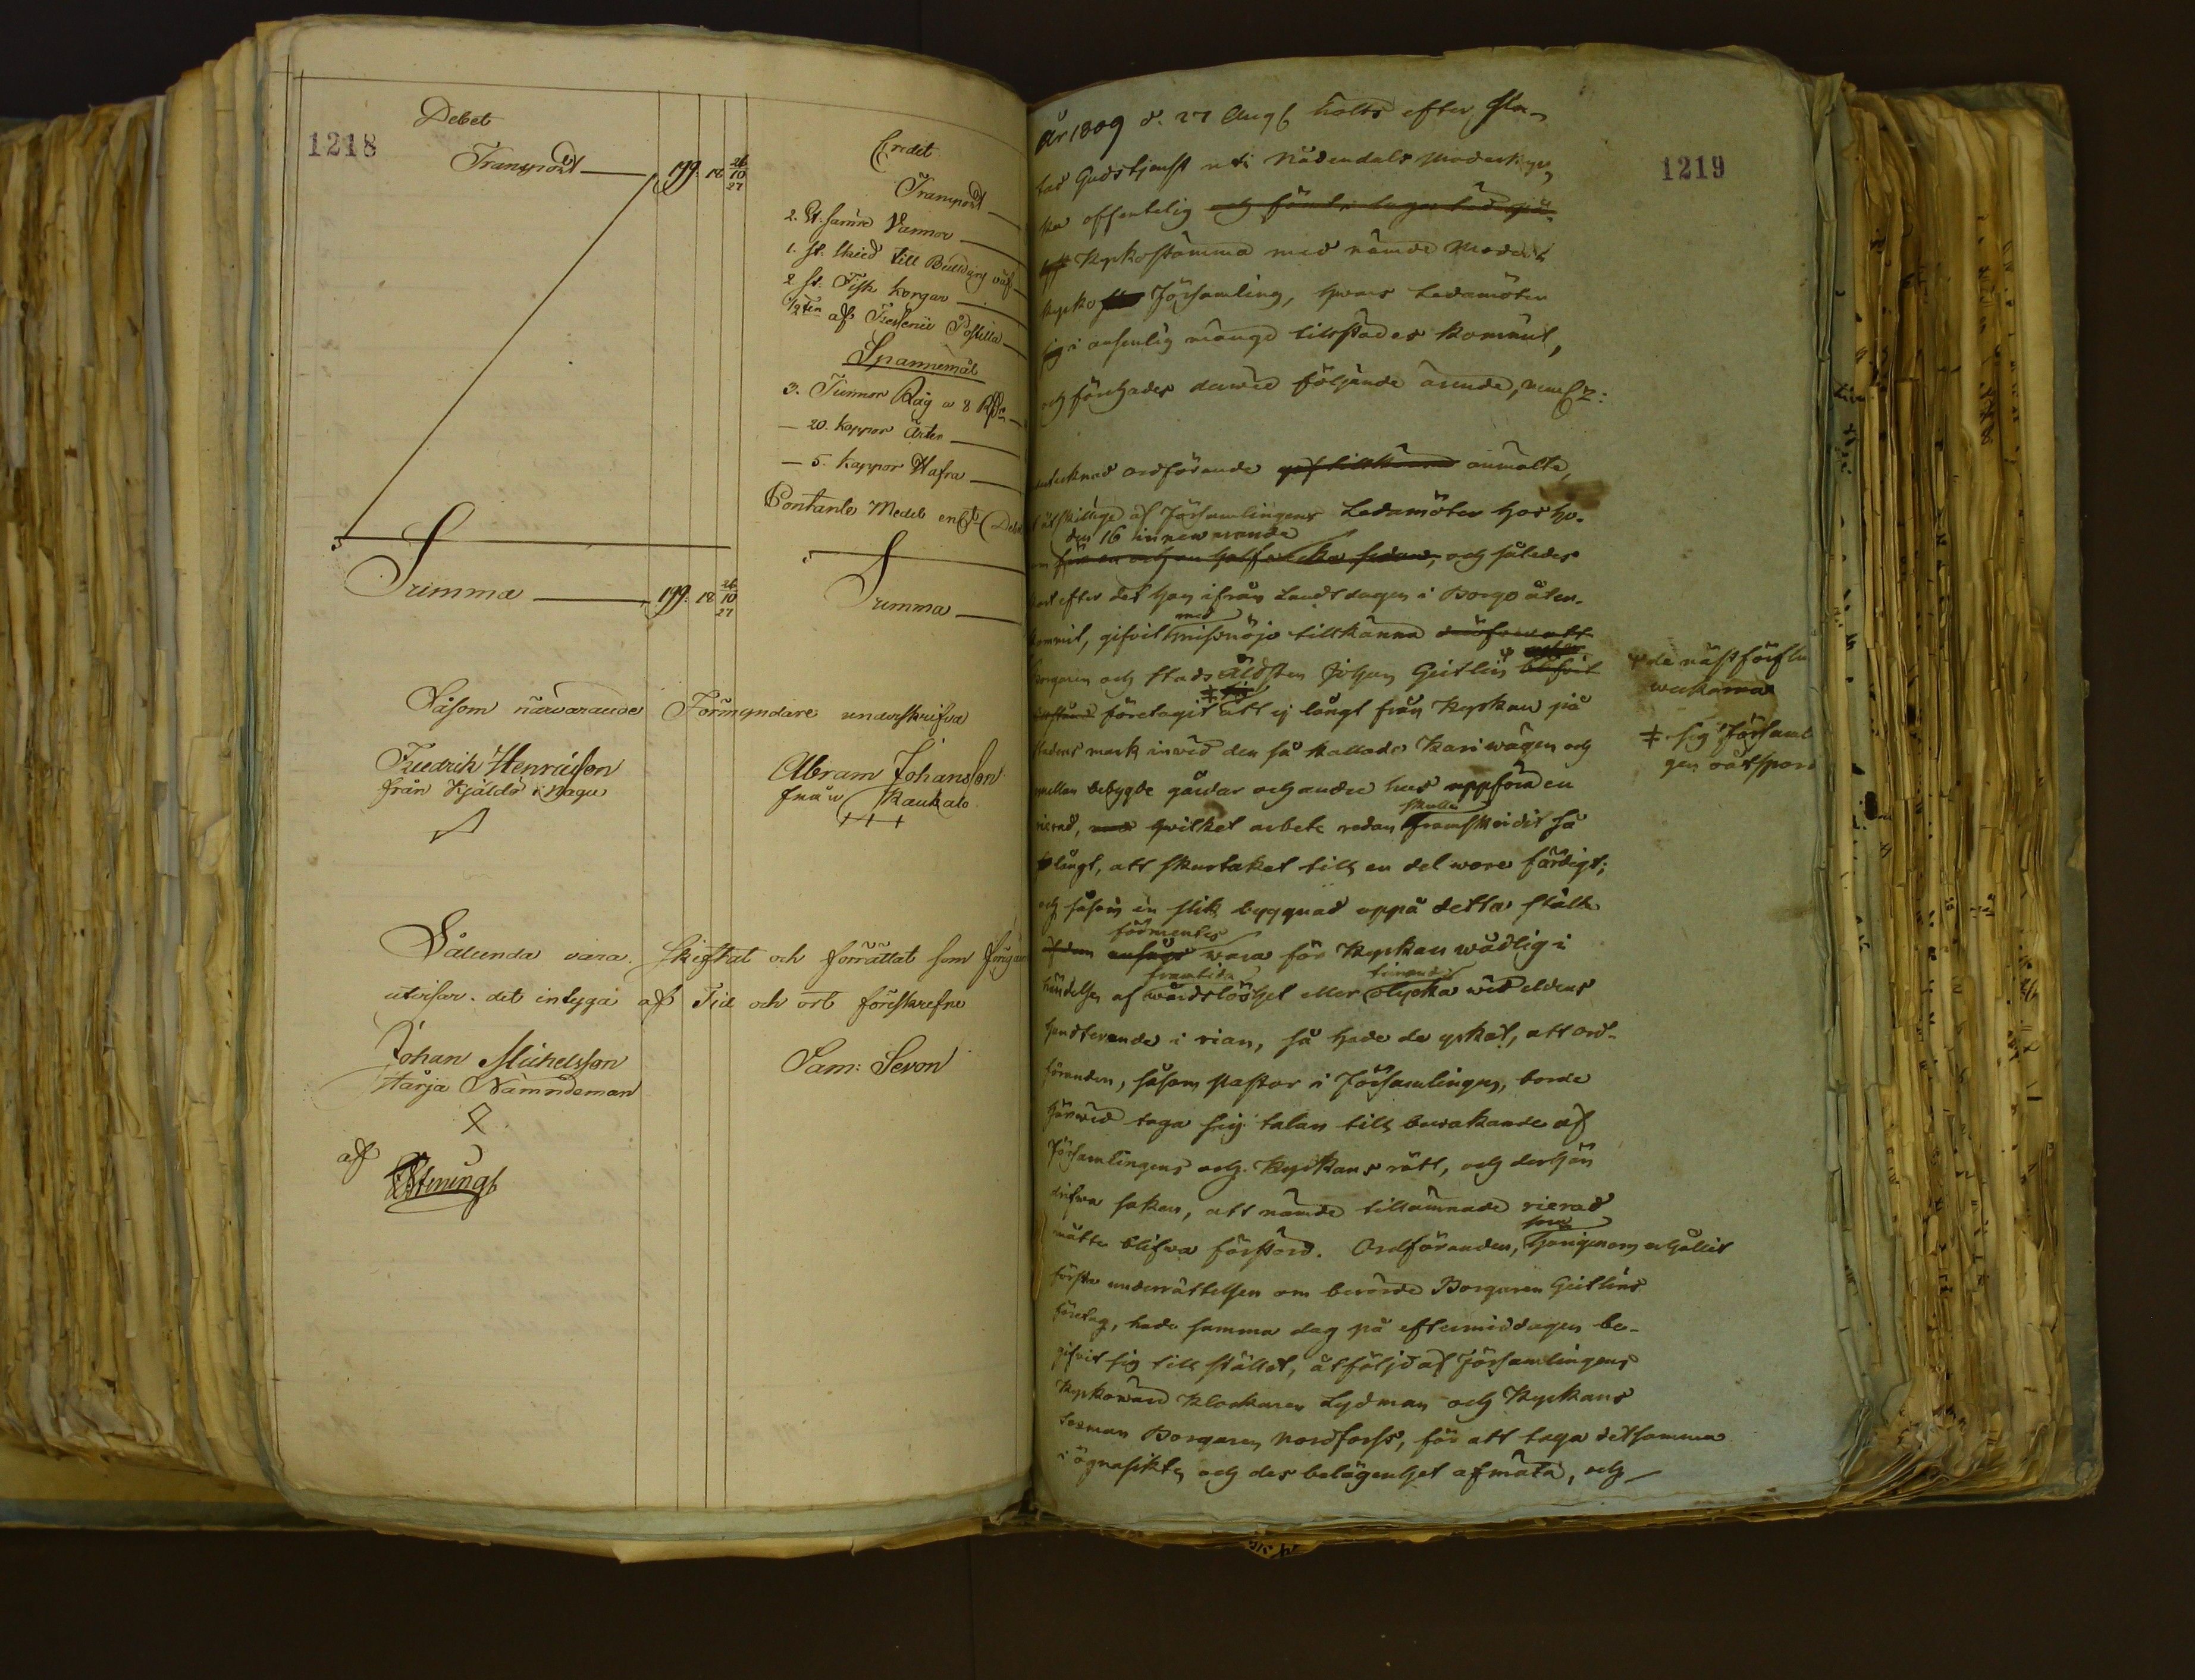 1218
Debet
Transport 199. 18 26/10 27
Summa 199. 18 26/10 27
Credit
Transport
2. St. samre Kannor
1. St. Skied till Buldang väf
2 St. Fisk korgar
1/2 ten af Fressenii Postilla
Spannemål
3. Tunnor Råg a 8 Rdr
20. kappor Ärter
5. kappor Hafra
Contante Medel enl. Debet
Summa
Såsom närvarande Förmyndare underskrifva
Fredrich Henricsson
från Kjäldö i Nagu
Abram Johansson
från Kaukalo
Sålunda vara Skiftat och förrättat som förigån
utvisar. det intyga af Tid och ort föreskrefne
Johan Michelsson
Härja Nämndeman
Sam: Sevon
af
1219
År 1809 d. 27 Aug. hölts efter slu-
tad Gudstjenst uti Nådendals Moderkyr-
ka offentelig
Kyrkostämma med nämde Moder
kyrko Församling, hwars Ledamöter
i ansenlig mängd tillstädes kommit,
och förehades derwid följande ärende, neml:
undertecknad ordförande anmälte,
at åtskillige af Församlingens Ledamöter hos ho-
den 16 innewarande
nom och således
kort efter det han ifrån Landtdagen i Borgo åter-
kommit, gifvit med missnöje tillkänna
Borgaren och Stads Äldsten Johan Geitlin
företagit att ej långt från Kyrkan på
stadens mark inwid den så kallade Kariwägen och
mellan bebygde gårdar och andre hus uppföra en
skulle
rierad, hwilket arbete redan framskridit så
långt, att skurtaket till en del wore färdigt;
och såsom en slik byggnad uppå detta ställe
förmentes
wara för Kyrkan wådlig i
framtida timande
händelse af wårdslöshet eller olycka wid eldens
handterande i rian, så hade de yrkat, att ord-
föranden, såsom Pastor i Församlingen, borde
härwid taga sig talan till bewakande af
Församlingens och Kyrkans rätt, och derhän
drifwa saken, att nämde tillämnade rierad
måtte blifwa förstörd. Ordföranden, som härigenom erhållit
första underrättelsen om berörde Borgaren Geitlins
företag, hade samma dag på eftermiddagen be-
gifvit sig till stället, åtföljd af Församlingens
Kyrkowärd Klockaren Lydman och Kyrkans
Sexman Borgaren Nordforss, för att taga detsamma
i ögnasikte, och des belägenhet afmäta, och
de näst förflu
weckorna
sig Församl
gen oåtspord